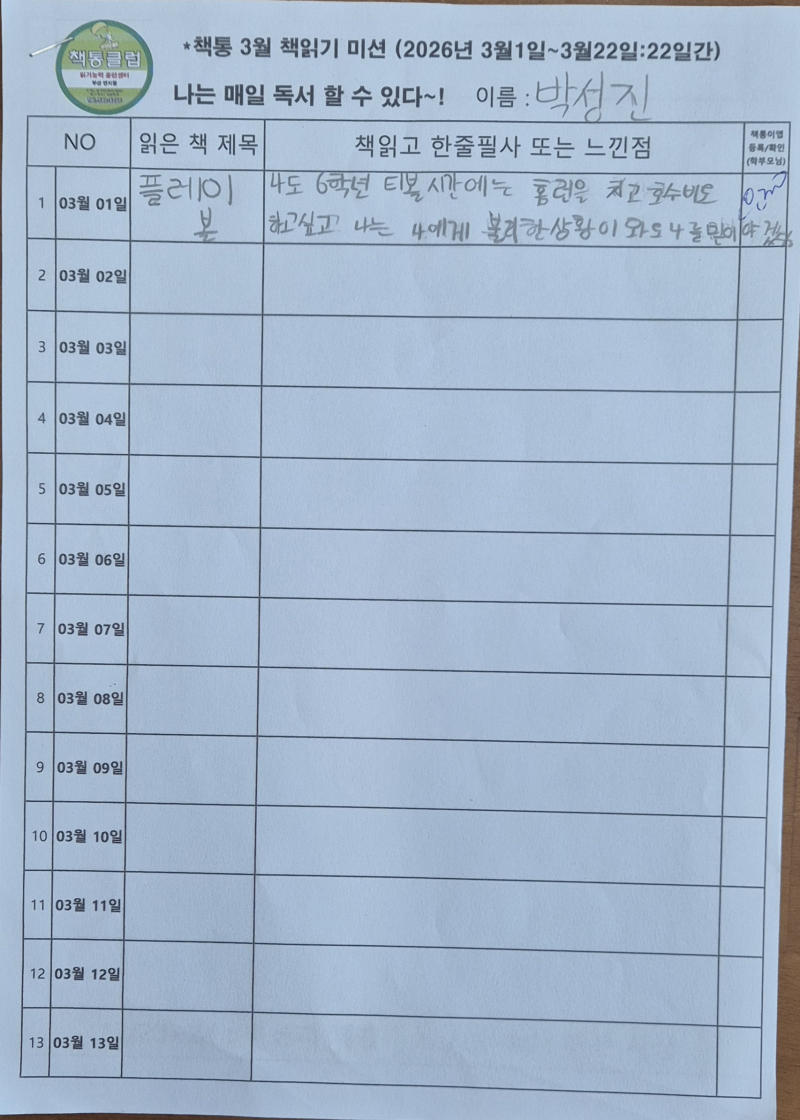 책통클럽
읽기능력 훈련센터
*책통 3월 책읽기 미션 (2026년 3월1일~3월22일:22일간)
나는 매일 독서 할 수 있다~! 이름 : 박성진
NO 읽은 책 제목 책읽고 한줄필사 또는 느낀점 책통이앱 등록/확인 (학부모님)
1 03월 01일 플레이 볼 나도 6학년 티볼 시간에는 홈런을 치고 호수비도
하고싶고 나는 나에게 불리한상황이 와도 나를 믿어야 겠다
2 03월 02일
3 03월 03일
4 03월 04일
5 03월 05일
6 03월 06일
7 03월 07일
8 03월 08일
9 03월 09일
10 03월 10일
11 03월 11일
12 03월 12일
13 03월 13일